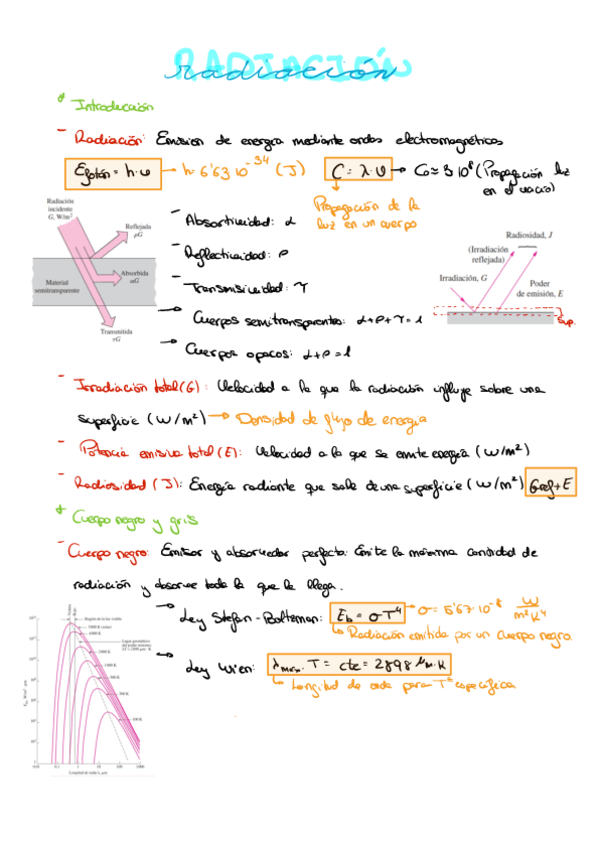 RADIACIÓN
radiación
* Introducción
- Radiación: Emisión de energía mediante ondas electromagnéticas
Efotón = h·υ → h = 6'63·10^-34 (J)
C = λ·υ → C₀ ≈ 3·10^8 (Propagación luz en el vacío)
Propagación de la
luz en un cuerpo
Radiación
incidente
G, W/m²
Reflejada
ρG
Absorbida
αG
Material
semitransparente
Transmitida
τG
- Absortividad: α
- Reflectividad: ρ
- Transmisividad: τ
→ Cuerpos semitransparentes: α+ρ+τ=1
→ Cuerpos opacos: α+ρ=1
Radiosidad, J
(Irradiación
reflejada)
Irradiación, G
Poder
de emisión, E
Sup.
- Irradiación total (G): Velocidad a la que la radiación influye sobre una
superficie (W/m²) → Densidad de flujo de energía
- Potencia emisiva total (E): Velocidad a la que se emite energía (W/m²)
- Radiosidad (J): Energía radiante que sale de una superficie (W/m²) Gref + E
* Cuerpo negro y gris
- Cuerpo negro: Emisor y absorvedor perfecto. Emite la máxima cantidad de
radiación y absorve toda la que le llega.
→ Ley Stefan-Boltzman: Eb = σT⁴ → σ = 5'67·10^-8 W/m²K⁴
↳ Radiación emitida por un cuerpo negro
→ Ley Wien: λmax·T = cte = 2898 μm·K
↳ Longitud de onda para Tª específica
Región de la luz visible
Longitud de onda λ, μm